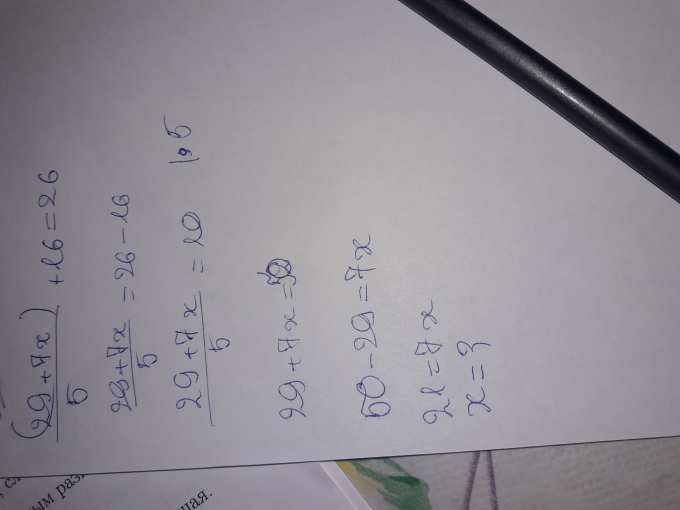 (29+7x)/5 +16=26
29+7x/5 =26-16
29+7x/5 =10 |•5
29+7x=50
50-29=7x
21=7x
x=3
ым раз
ная.